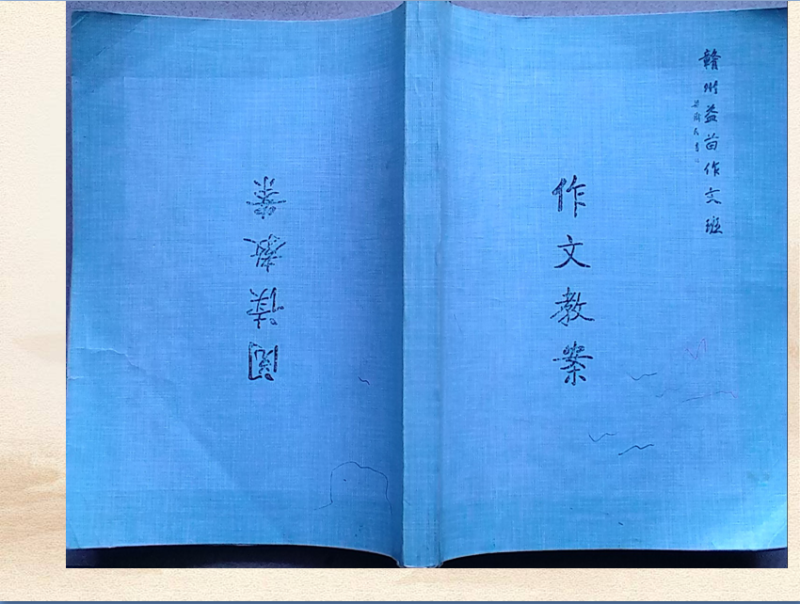 赣州益苗作文班
作文教案
阅读教案